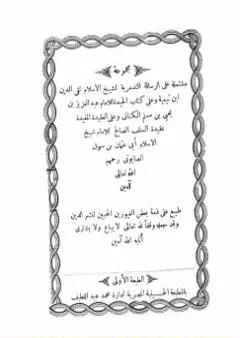 مجموعة
مشتملة على الرسالة التدمرية لشيخ الاسلام تقي الدين
ابن تيمية وعلى كتاب الحيدة للامام عبد العزيز بن
يحيى بن مسلم الكناني وعلى العقيدة المفيدة
عقيدة السلف الصالح للامام شيخ
الاسلام أبي عثمان بن
الصابوني رحمهم
الله تعالى
آمين
طبع على ذمة بعض الغيورين المحبين لنشر الدين
وقد جعله وقفا لله تعالى لا يباع ولا يشترى
أثابه الله آمين
الطبعة الأولى
بالمطبعة الحسينية المصرية ادارة محمد عبد اللطيف